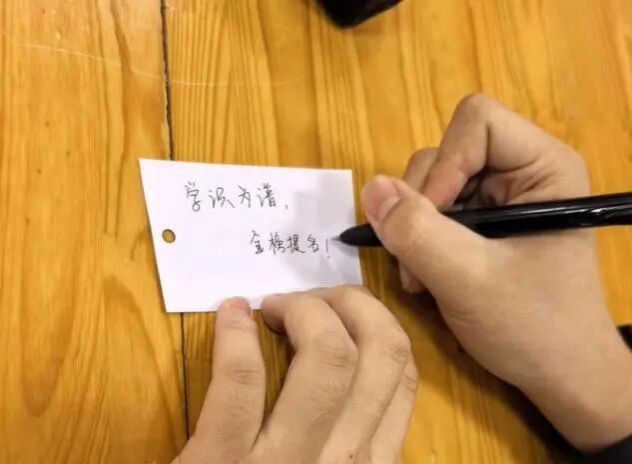 学识为谱，
金榜提名！